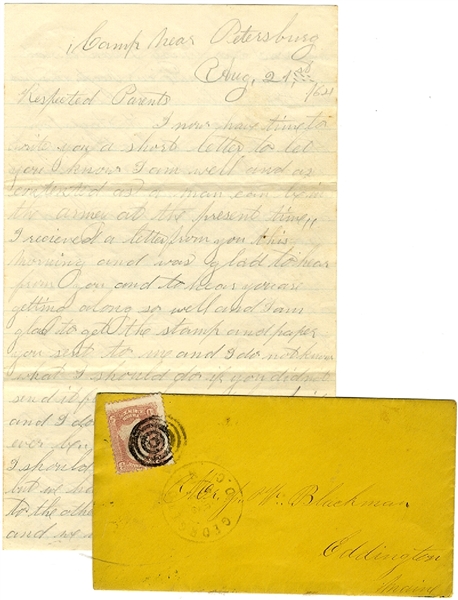 Camp Near Petersburg
Aug, 21st
/64
Respected Parents
I now have time to
write you a short letter to let
you I know I am well and as
contented as a man can be in
the armey at the present time,,
I recieved a letter from you this
morning and was glad to hear
from you and to hear you are
getting along so well and I am
glad to get the stamp and paper
you sent to me and I do not know
what I should do if you didnt
send it
and I do
ever be
I should
but we
to the othe
and we
GEORGE
D.C.
Mr. Wm Blackman
Eddington
Maine